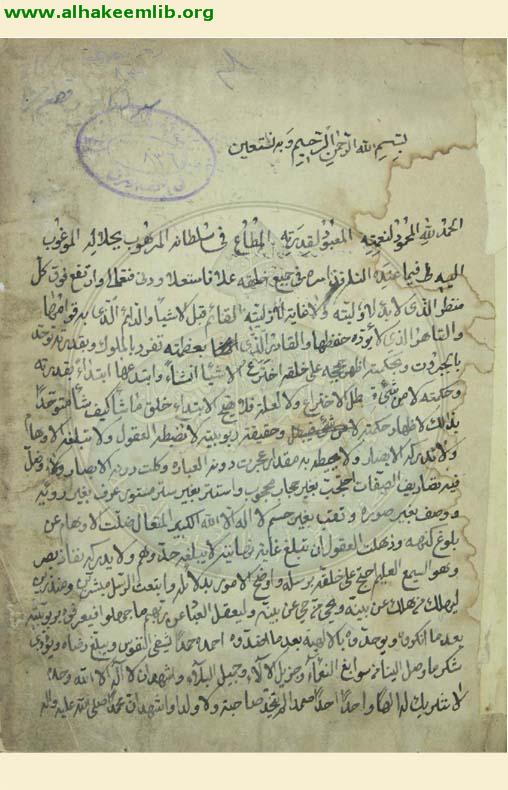 www.alhakeemlib.org
بسم الله الرحمن الرحيم وبه نستعين
الحمد لله المحمود لنعمته المعبود لقدرته المطاع في سلطانه المرهوب بجلاله المرغوب
اليه فيما عنده النافذ امره في جميع خلقه علا فاستعلا ودنى فتعالى وارتفع فوق كل
منظر الذي لا بدء لاوليته ولا غاية لازليته القائم قبل الاشياء والدائم الذي به قوامها
والقاهر الذي لا يؤده حفظها والقادر الذي بعظمته تفرد بالملكوت وبقدرته توحد
بالجبروت وبحكمته اظهر حججه على خلقه اخترع الاشياء انشاء وابتدعها ابتداء بقدرته
وحكمته لا من شيء فيبطل الاختراع ولا لعلة فلا يصح الابتداء خلق ما شاء كيف شاء متوحدا
بذلك لاظهار حكمته وحقيقة ربوبيته لا تضبطه العقول ولا تبلغه الاوهام
ولا تدركه الابصار ولا يحيط به مقدار عجزت دونه العبارة وكلت دونه الابصار وضل
فيه تصاريف الصفات احتجب بغير حجاب محجوب واستتر بغير ستر مستور عرف بغير روية
ووصف بغير صورة ونعت بغير جسم لا اله الا الله الكبير المتعال ضلت الاوهام عن
بلوغ كنهه وذهلت العقول ان تبلغ غاية نهايته لا يبلغه حد وهم ولا يدركه نفاذ بصر
وهو السميع العليم احتج على خلقه برسله واوضح الامور بدلائله وابتعث الرسل مبشرين ومنذرين
ليهلك من هلك عن بينه ويحيى من حي عن بينه وليعقل العباد عن ربهم ما جهلوا فيعرفوه بربوبيته
بعد ما انكروه ويوحدوه بالالهيه بعد ما احمده حمدا يشفي النفوس ويبلغ رضاه ويؤدي
شكر ما وصل الينا من سوابغ النعماء وجزيل الالاء وجميل البلاء واشهد ان لا اله الا الله وحده
لا شريك له الها واحدا احدا صمدا لم يتخذ صاحبة ولا ولدا واشهد ان محمدا صلى الله عليه واله